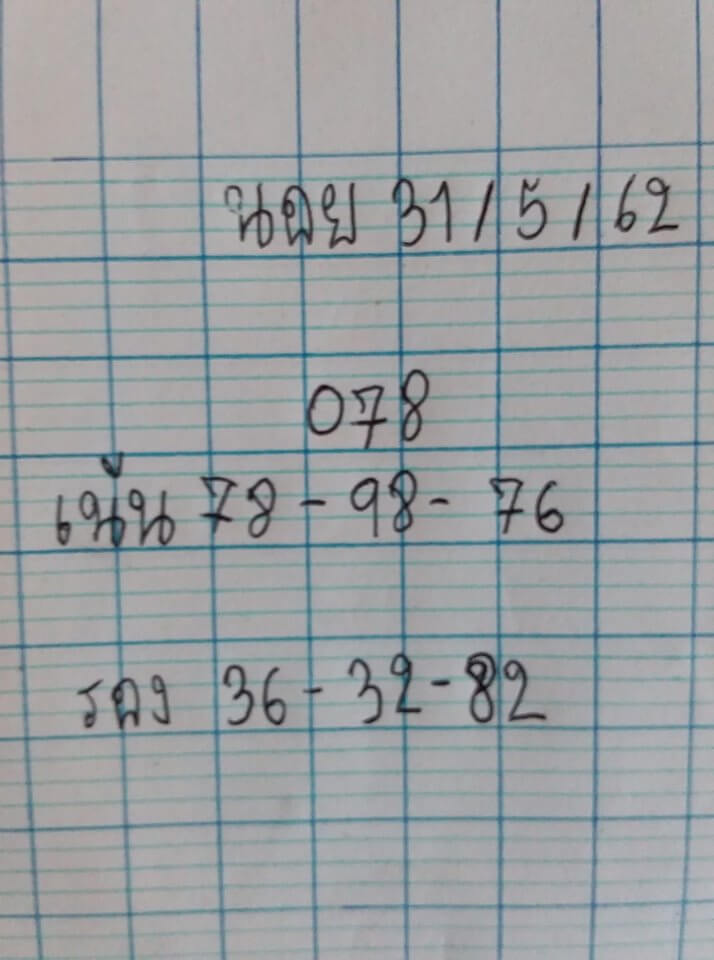 ฮานอย 31/5/62
078
เน้น 78 - 98 - 76
รอง 36 - 32 - 82